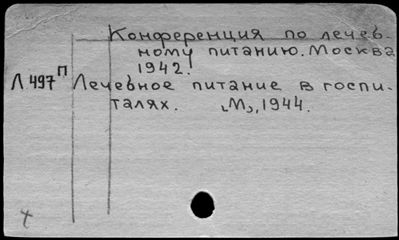 Конференция по лечеб-
ному питанию. Москва
1942.
Л 497 П Лечебное питание в госпи-
талях. „М„, 1944.